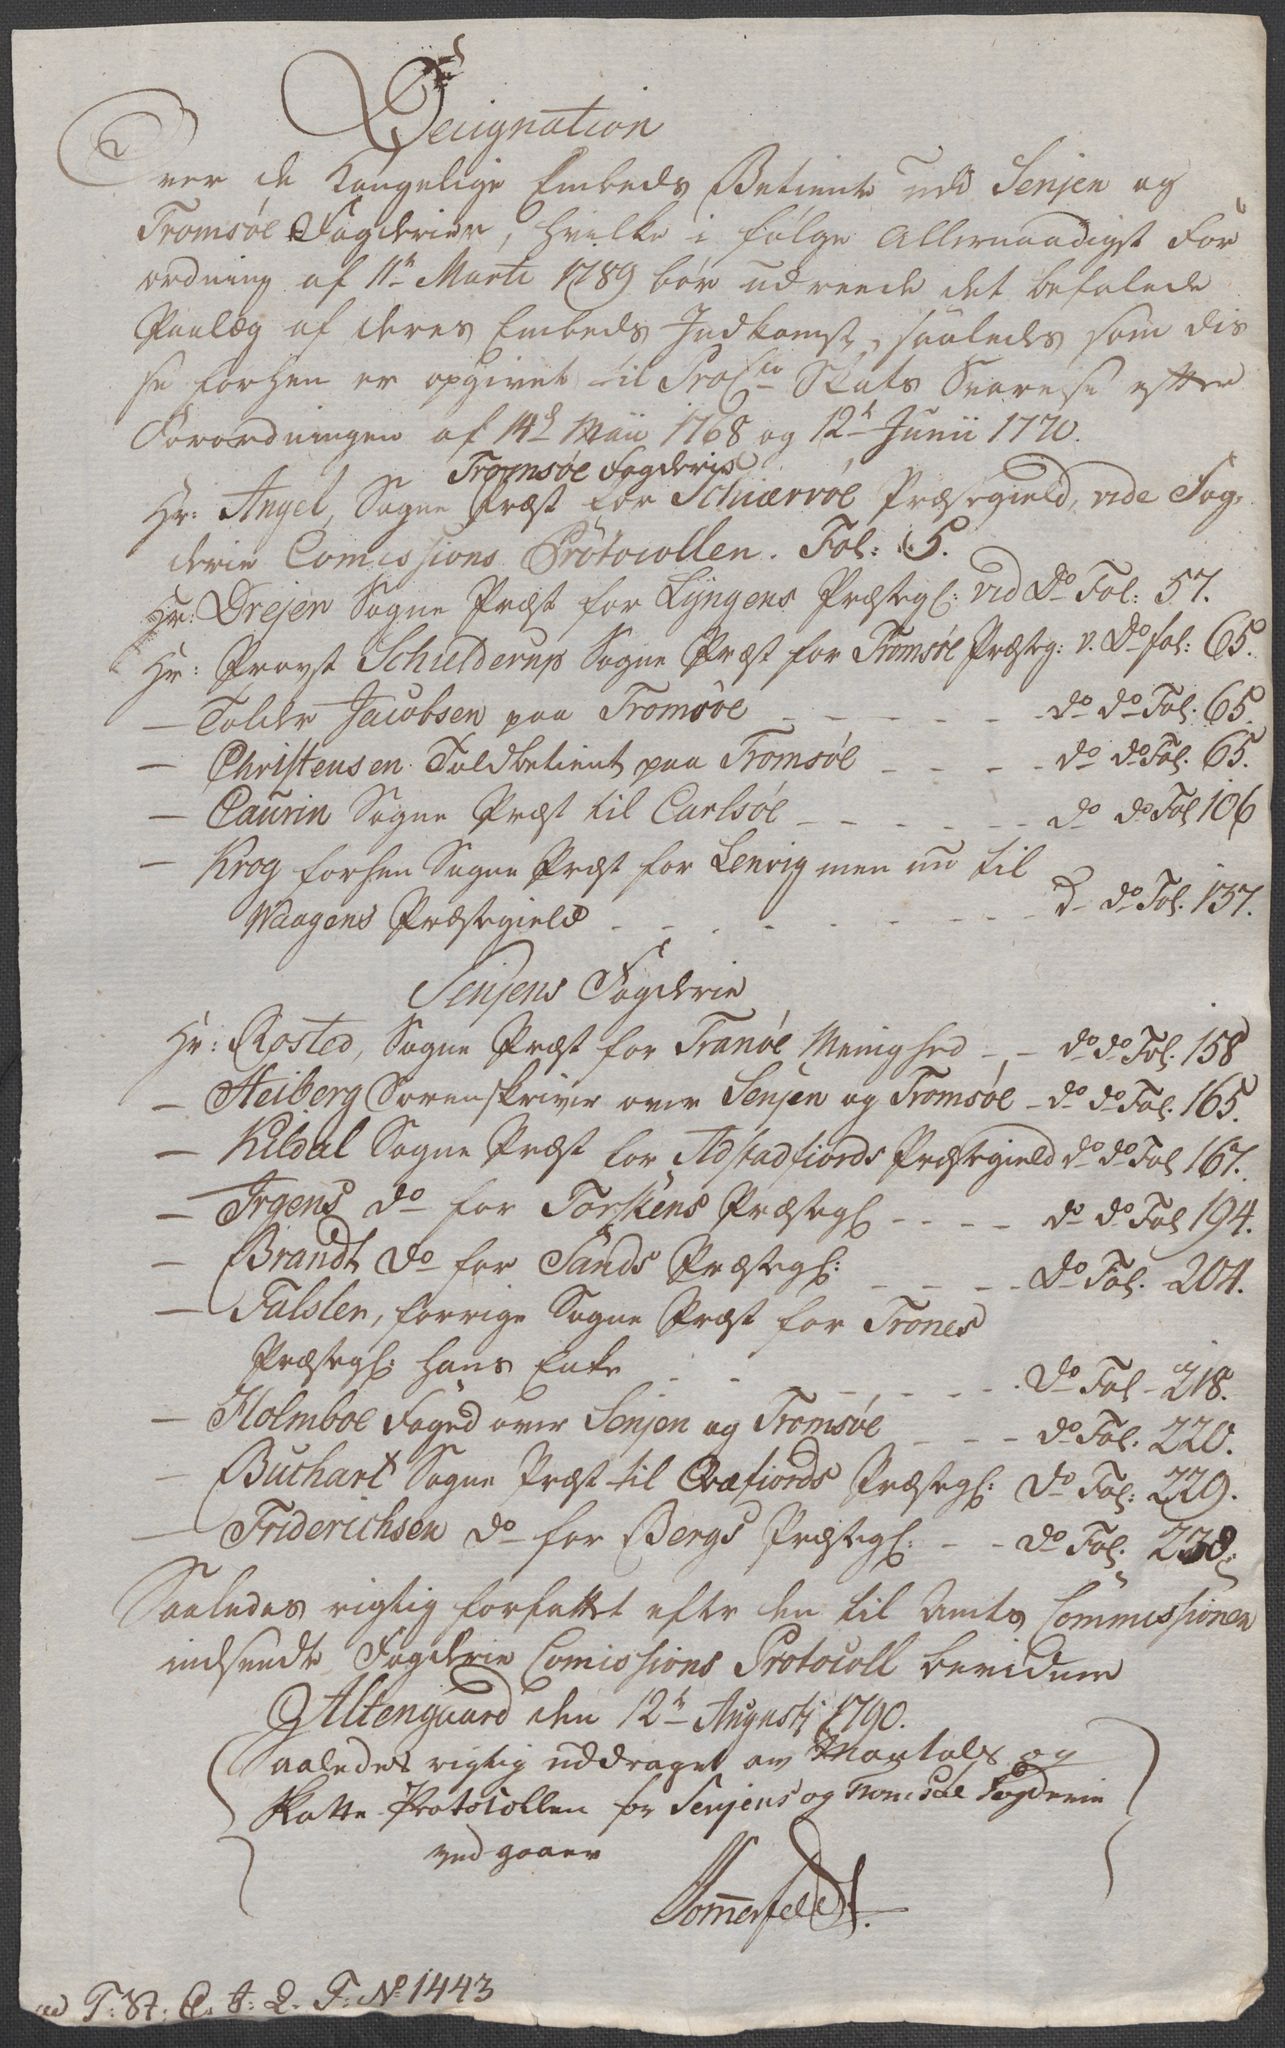 Designation
Over de Kongelige Embeds Betiente udi Senjen og
Tromsøe Fogderier, hvilke i følge Allernaadigst For
ordning af 11te Marti 1789 bør udreede det befalede
Paalæg af deres Embeds Indkomst, saaledes som dis
se forhen er opgivet til ProCto Skats Svarelse efter
Forordningen af 14de Maii 1768 og 12te Junii 1770.
Tromsøe Fogderie
Hr: Angel, Sogne Præst for Schiærvøe Præstegield, vide Fog-
derie Comissions Protocollen. Fol: 5.
Hr: Drejer Sogne Præst for Lyngens Præstegl: vid Do Fol: 57.
Hr: Provst Schielderup Sogne Præst for Tromsøe Præsteg: v. Do fol: 65.
— Tolder Jacobsen paa Tromsøe - - - - - do do Fol. 65.
— Christensen Toldbetient paa Tromsøe - - - - do do Fol. 65.
— Caurin Sogne Præst til Carlsøe - - - - - - do do Fol 106
— Krog forhen Sogne Præst for Lenvig men nu til
Waagens Præstegield - - - - - - - - D do Fol. 137.
Senjens Fogderie
Hr: Rosted, Sogne Præst for Tranøe Menighed - - do do Fol. 158
— Heiberg Sorenskriver over Senjen og Tromsøe - do do Fol. 165.
— Kildal Sogne Præst for Astadfiords Præstegield do do Fol 167.
— Irgens do for Torskens Præstegl - - - - do do Fol 194.
— Brandt do for Sands Præstegl: - - - - do Fol. 204.
— Falster, forrige Sogne Præst for Trones
Præstegl: hans Enke - - - - - - - do Fol - 218.
— Holmboe Foged over Senjen og Tromsøe - - - do Fol. 220.
— Buchart Sogne Præst til Qvæfiords Præstegl: do Fol: 229.
— Friderichsen do for Bergs Præstegl: - - do Fol: 230.
Saaledes rigtig forfattet efter den til Amts Commissionen
indsendte Fogderie Comissions Protocoll bevidner
Altengaard den 12te Augusti 1790.
Saaledes rigtig uddraget av Mantals og
Skatte Protocollen for Senjens og Tromsøe Fogderie
ved gaaer
Sommerfeldt.
ad T: St. C. J: L. F: No 1443